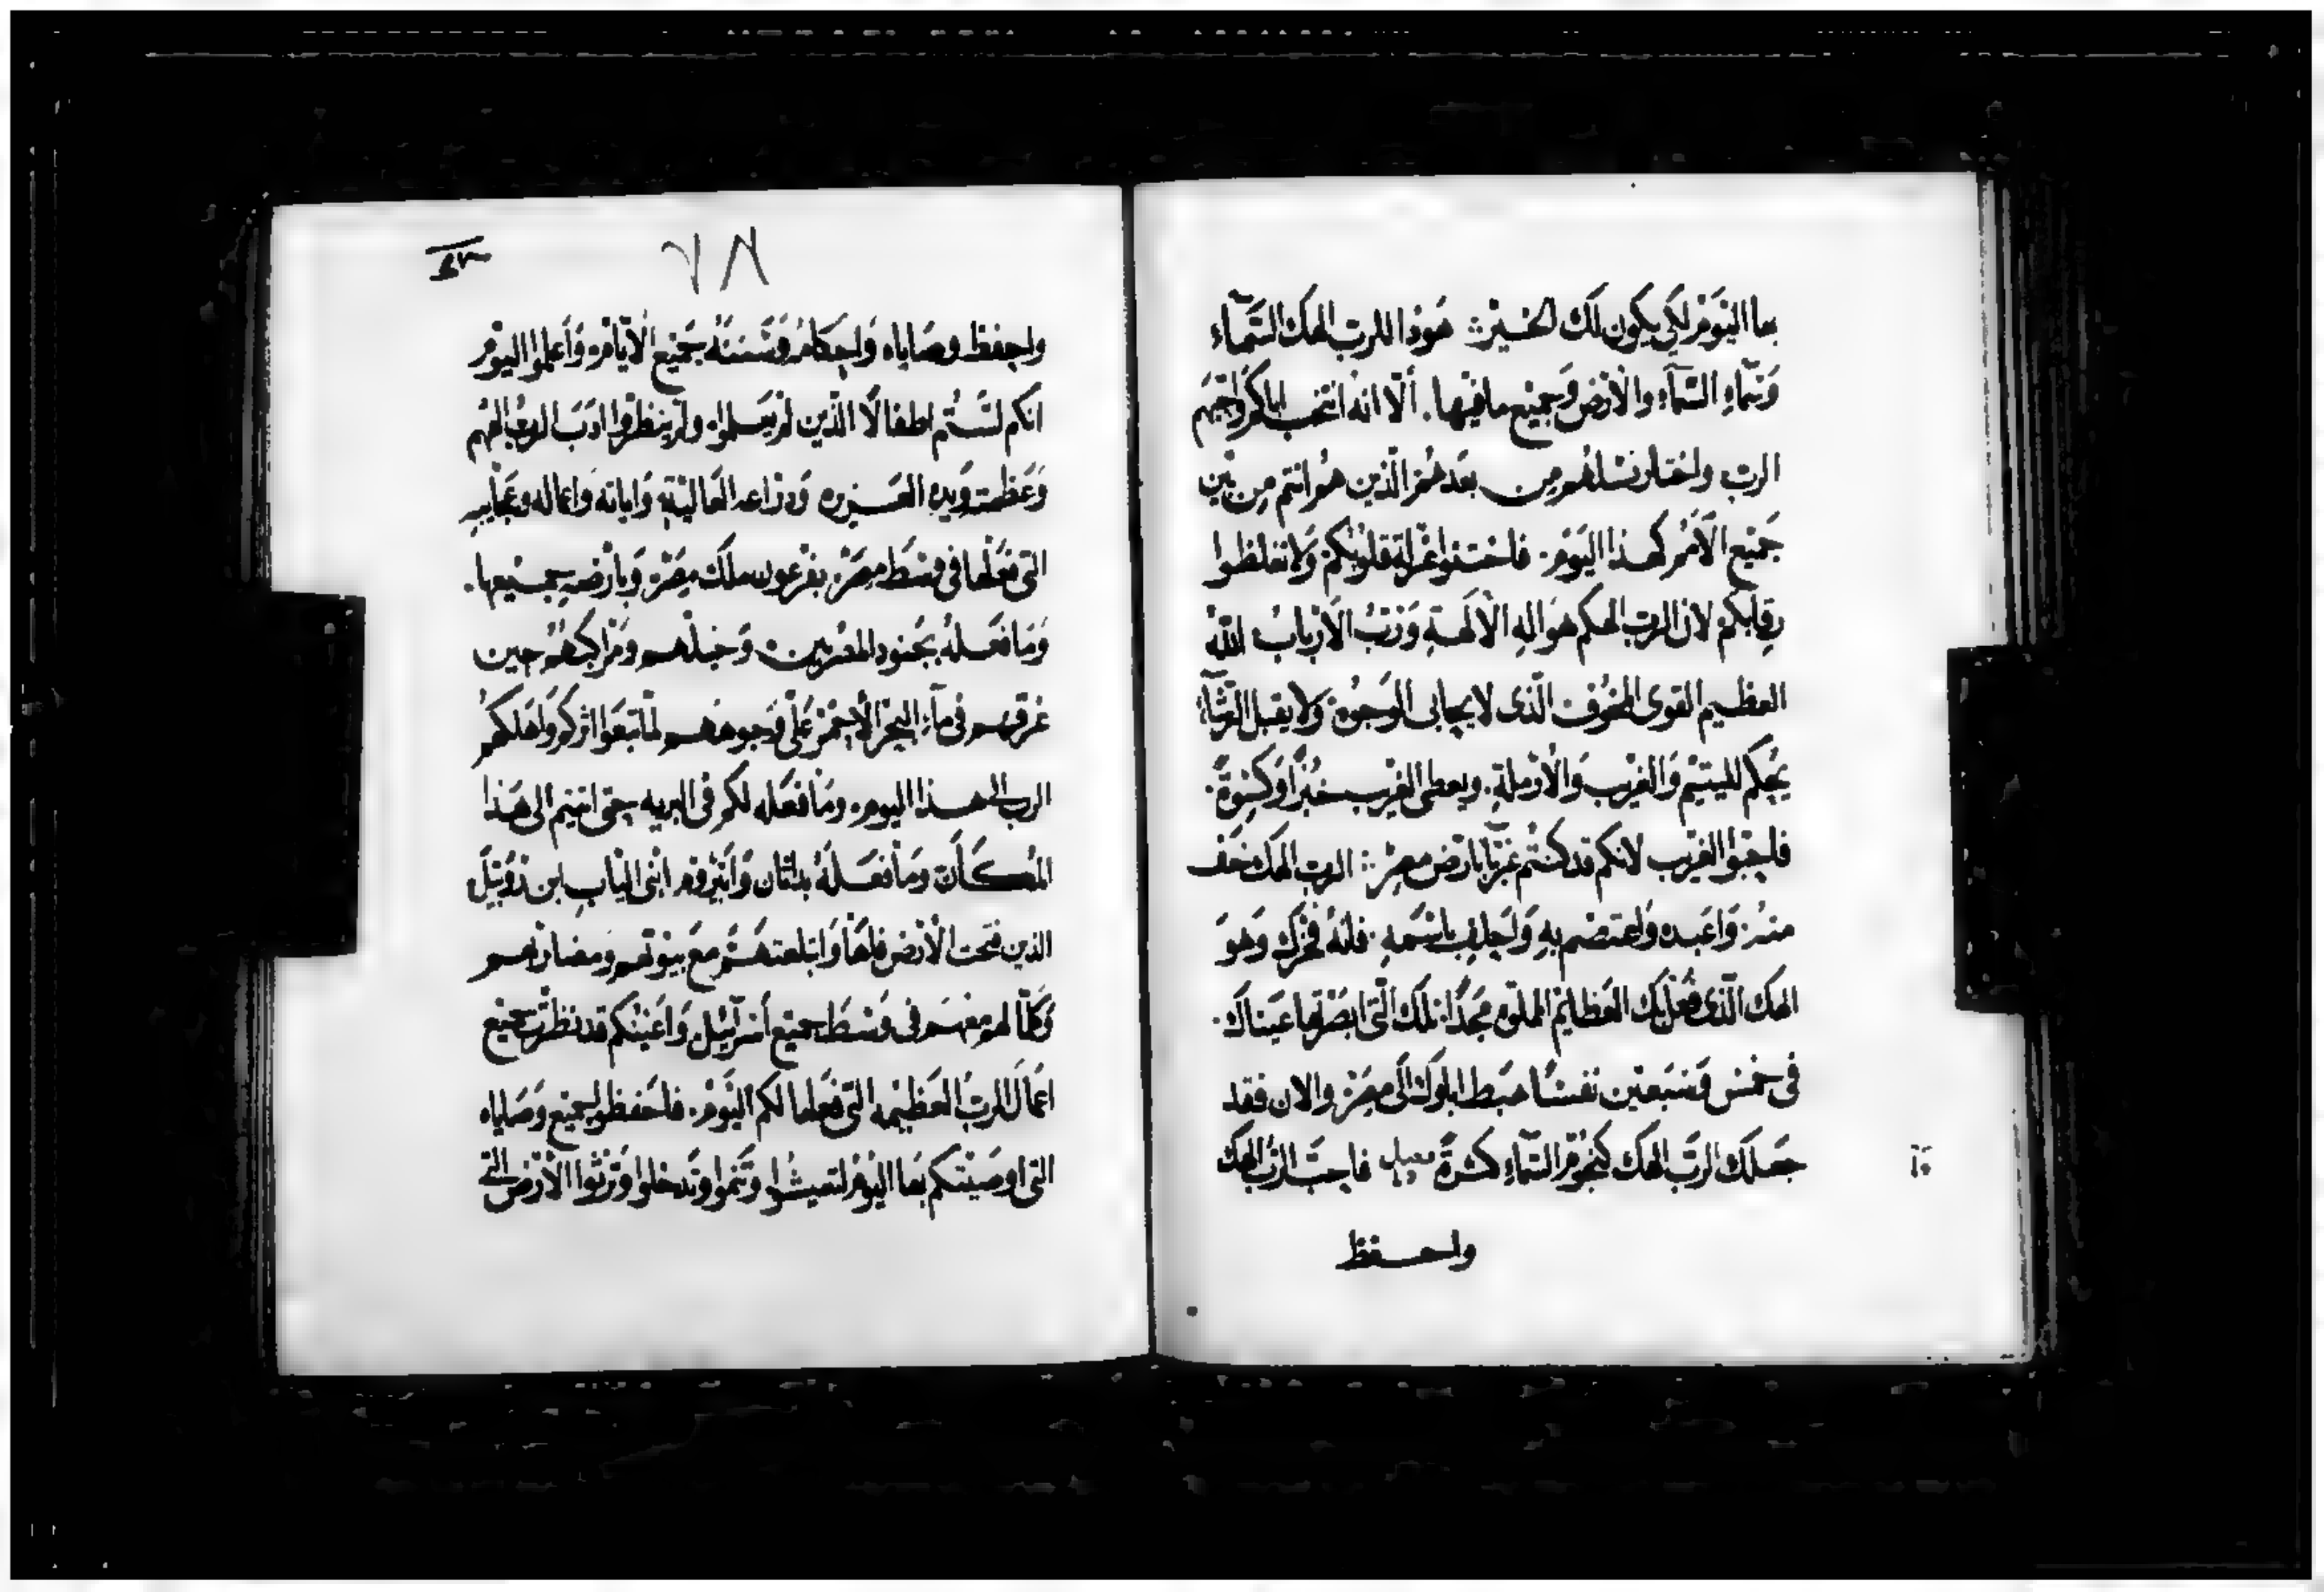 بها اليَوْمَ لكَي يكون لَك الخَيْرُ ∴ هَوذا للرب الهك السَّمآء
وَسَمآءِ السَّمآءِ والأرْض وَجميْع ما فيْها. ألّا انه انتخب اباكم واحبَهم
الرب واختار نسْلهُم مِن بعَدهُم الّذين هُوانتم مِن بَيْن
جَميْع الأمَم كهذا اليَومِ. فاختنوا غرلة قلوُبكمْ وَلا تغلظوا
رقابكم لان الرب الهكم هَوَ اله الآلهة وَرَبُ الأرْباب اللّهُ
العظيم القوى المخوُف الّذى لا يحابى الوجُوهُ وَلا يقبل الرُشآءُ
يَحكم لليتيْم وَالغرْيب وَالأرْملةِ. ويعطى الغرْيب خبزًا وَكسْوةً.
فاحبّوا الغريب لانكم قد كنتُم غربًا بارْض مصْر ∴ الرب الهك خَف
منهُ. وَاعَبده وَاعتصْم بهِ وَاحِلف باسْمهِ. فانهُ فخْركَ وَهوَ
الهك الّذى فعل بك العَظايْم المملوَه مَجدًا. تلك الّتى ابصَرْتها عَيناكَ.
فى خمسْ وَسَبعيْن نفسْا هبَط اباوَك الَى مصْرَ والان فقد
جَعلك الرَبّ الهك كنجُوْم السّماءِ كثرةً فاحِبّ الرَبّ الهكَ
واحفظ
١٥
٦٨
واحفظ وصَاياه وَاحكامُه وَسُننهُ جَميْع الأيّام. وَأعلموا اليوْم
انكم لسْتُم اطفالًا الّذين لمْ يَعلموا. ولمْ ينظرْوا ادَبَ الربّ الهُهم
وَعَظمته وَيده العَزيزه وَدرْاعه العَاليَة وَاياته وَاعماله وعَجَايبه
التى فعَلها فى وسْط مصْرَ بفرْعون ملك مصْرَ وَبارْضه جميْعها.
وَمَا فعَلهُ بجنود المصْرييْن وَخيلهم وَمَراكبَهُم حين
غرقهم فى مآءِ البَحْر الأحمْر عَلَى وَجوههم لمّا تبعَوا اثركم وَاهَلكهُم
الرب الى هذا اليوم. ومَا فعَله لكم فى البريه حتى اتيتم الى هَذا
المُكَان وَمَا فعَلهُ بداثان وَأبيْروم ابنى الياب ابن رُوبيْل
الذين فتحت الأرْض فاها وَابتلعتهَم مَعَ بيوُتهم وَمضارْبهم
وَكلّما لهم مَعهَم فى وَسْط جميْع أسْرآئيْل وَأعَينكم قد نظرْت جميْع
اعَمال الربّ العَظيْمه التى فعَلها لكم اليَوْم. فاحَفظوا جميْع وَصَاياه
التى اوصَيْتكم بهَا اليَوْمُ لتعيشْوا وَتَنموا وَتَدخلوا وَتَرثُوا الأرْض الّتى